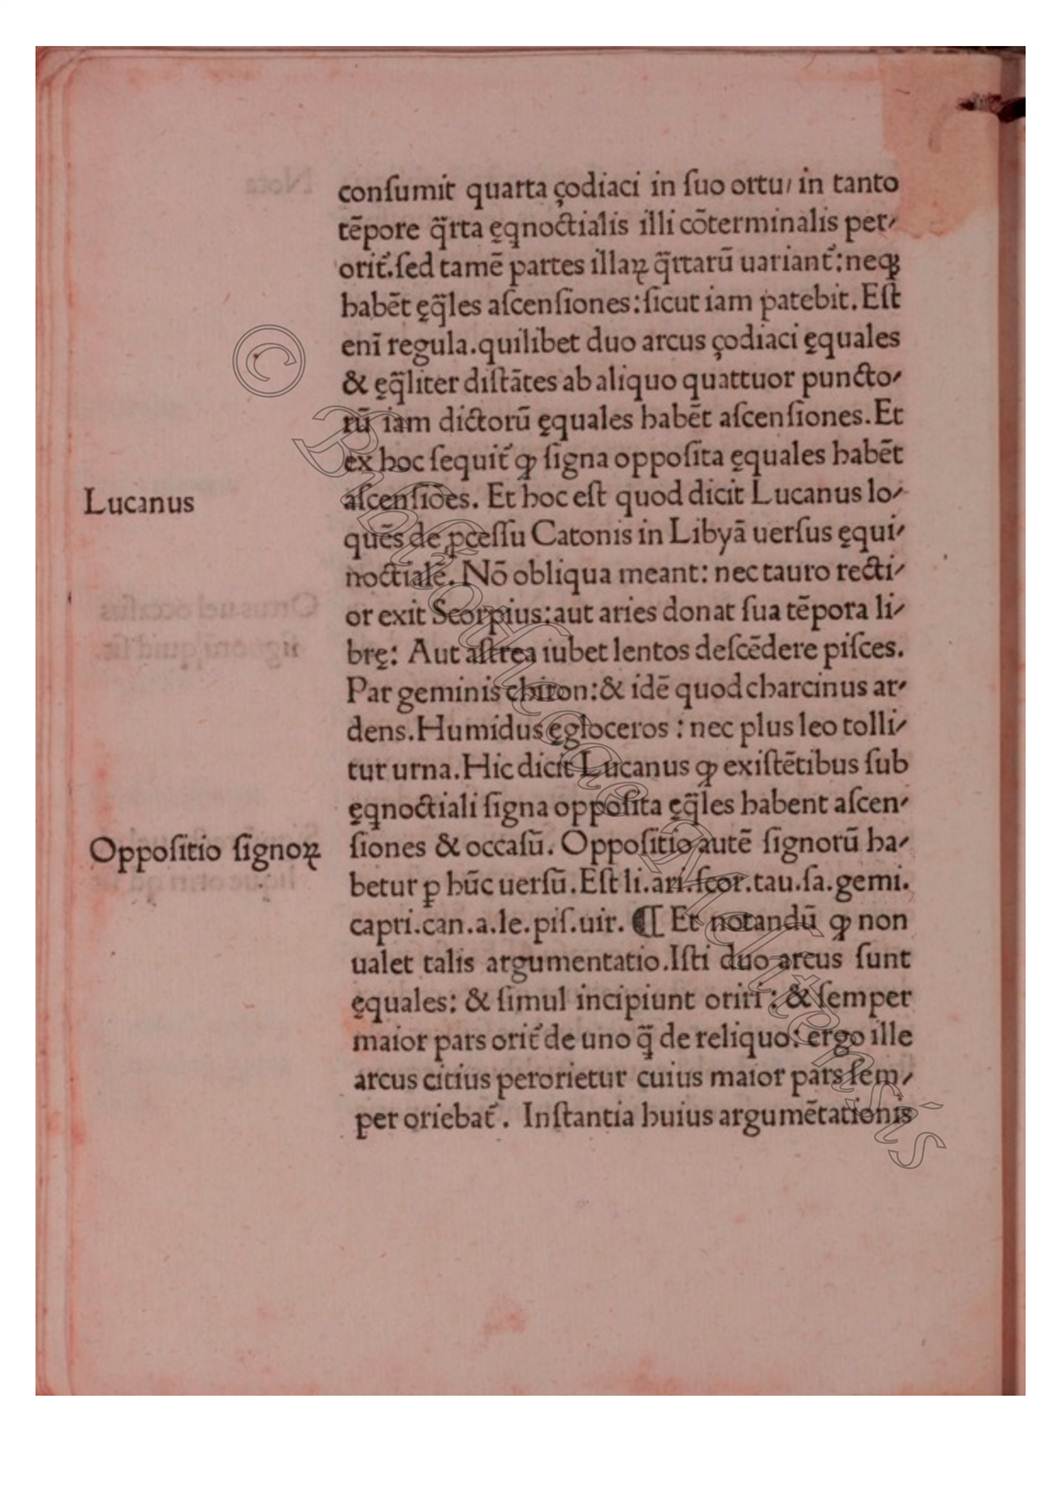 conſumit quarta çodiaci in ſuo ortu/ in tanto
tēpore q̄rta ęqnoctialis illi cōterminalis per/
orit᷑.ſed tamē partes illaꝝ q̄rtarū uariant᷑:neqꝫ
habēt ęq̄les aſcenſiones:ſicut iam patebit. Eſt
enī regula.quilibet duo arcus çodiaci ęquales
& ęq̄liter diſtātes ab aliquo quattuor puncto/
rū iam dictorū ęquales habēt aſcenſiones. Et
ex hoc ſequit᷑ ꝙ ſigna oppoſita ęquales habēt
Lucanus
aſcenſiōes. Et hoc eſt quod dicit Lucanus lo/
quēs de ꝓceſſu Catonis in Libyā uerſus ęqui/
noctialē. Nō obliqua meant: nec tauro recti/
or exit Scorpius:aut aries donat ſua tēpora li/
brę: Aut aſtrea iubet lentos deſcēdere piſces.
Par geminis chiron:& idē quod charcinus ar/
dens.Humidus ęgloceros : nec plus leo tolli/
tur urna.Hic dicit Lucanus ꝙ exiſtētibus ſub
ęqnoctiali ſigna oppoſita ęq̄les habent aſcen/
Oppoſitio ſignoꝝ
ſiones & occaſū. Oppoſitio autē ſignorū ha/
betur ꝑ hūc uerſū.Eſt li.ari.ſcor.tau.ſa.gemi.
capri.can.a.le.piſ.uir. ¶ Et notandū ꝙ non
ualet talis argumentatio.Iſti duo arcus ſunt
ęquales: & ſimul incipiunt oriri : & ſemper
maior pars orit᷑ de uno q̄ de reliquo: ergo ille
arcus citius perorietur cuius maior pars ſem/
per oriebat᷑. Inſtantia huius argumētationis
© Biblioteca Nacional de España